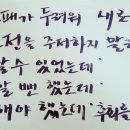 패가 두려워 새로
전을 주저하지 말
할수 있었는데
할 뻔 했는데
해야 했는데 후회를